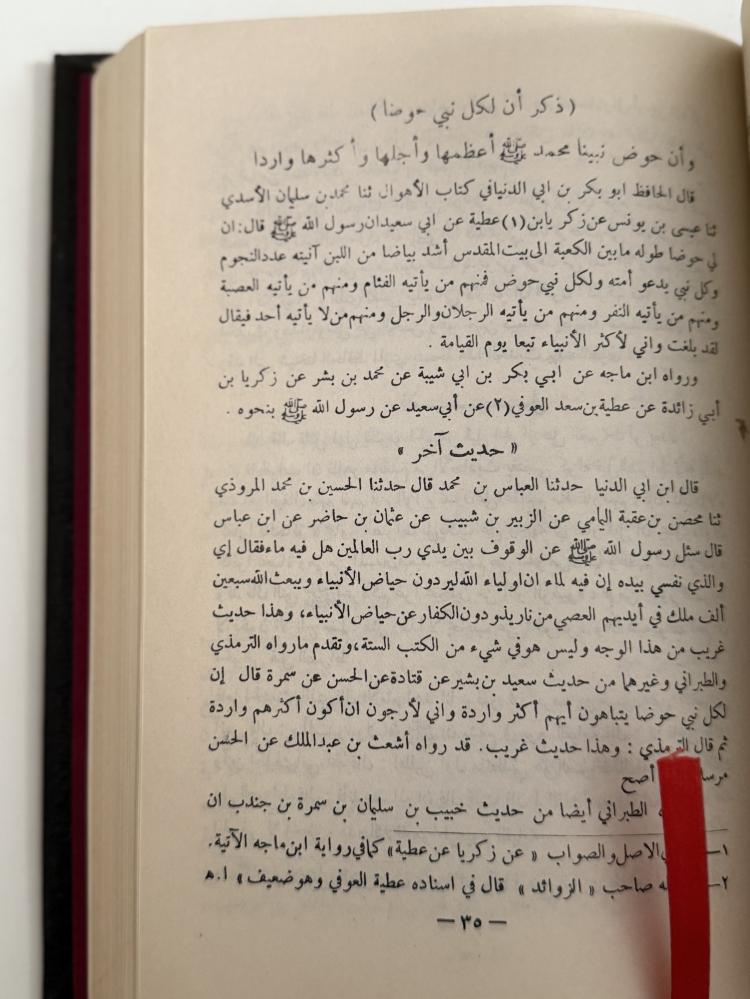 ( ذكر أن لكل نبي حوضا )
وأن حوض نبينا محمد ﷺ أعظمها وأجلها وأكثرها واردا
قال الحافظ ابو بكر بن ابي الدنيافي كتاب الأهوال ثنا محمدبن سليمان الأسدي
ثنا عيسى بن يونس عن زكر يابن (١) عطية عن ابي سعيدان رسول الله ﷺ قال : ان
لي حوضا طوله مابين الكعبة الى بيت المقدس أشد بياضا من اللبن آنيته عددالنجوم
وكل نبي يدعو أمته ولكل نبي حوض فمنهم من يأتيه الفئام ومنهم من يأتيه العصبة
ومنهم من يأتيه النفر ومنهم من يأتيه الرجلان والرجل ومنهم من لا يأتيه أحد فيقال
لقد بلغت واني لأكثر الأنبياء تبعا يوم القيامة .
ورواه ابن ماجه عن ابي بكر بن ابي شيبة عن محمد بن بشر عن زكريا بن
أبي زائدة عن عطية بن سعد العوفي (٢) عن أبي سعيد عن رسول الله ﷺ بنحوه .
« حديث آخر »
قال ابن ابي الدنيا حدثنا العباس بن محمد قال حدثنا الحسين بن محمد المروذي
ثنا محصن بن عقبة اليامي عن الزبير بن شبيب عن عثمان بن حاضر عن ابن عباس
قال سئل رسول الله ﷺ عن الوقوف بين يدي رب العالمين هل فيه ماء فقال إي
والذي نفسي بيده إن فيه لماء ان اولياء الله ليردون حياض الأنبياء ويبعث الله سبعين
ألف ملك في أيديهم العصي من نار يذودون الكفار عن حياض الأنبياء، وهذا حديث
غريب من هذا الوجه وليس هو في شيء من الكتب الستة، وتقدم مارواه الترمذي
والطبراني وغيرهما من حديث سعيد بن بشير عن قتادة عن الحسن عن سمرة قال إن
لكل نبي حوضا يتباهون أيهم أكثر واردة واني لأرجون ان أكون أكثرهم واردة
ثم قال الترمذي : وهذا حديث غريب. قد رواه أشعث بن عبدالملك عن الحسن
أصح
الطبراني أيضا من حديث خبيب بن سليمان بن سمرة بن جندب ان
١— الاصل والصواب « عن زكريا عن عطية» كما في رواية ابن ماجه الآتية.
٢— صاحب « الزوائد » قال في اسناده عطية العوفي وهو ضعيف » ا.ه
— ٣٥ —